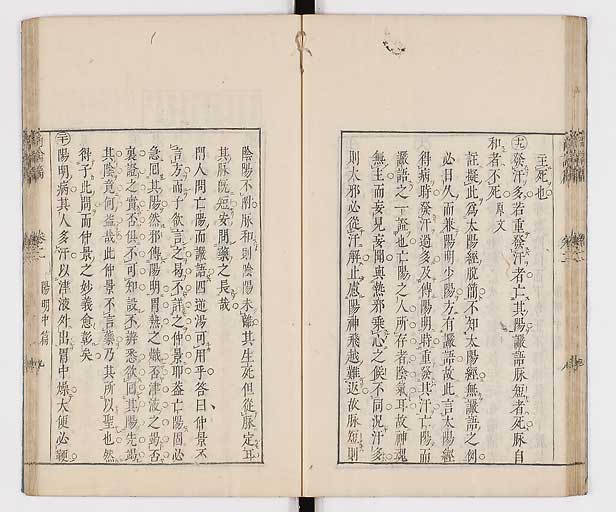 主死也
十九發汗多若重發汗者亡其陽譫語脉短者死脉自
和者不死原文
註擬此爲太陽經脫簡不知太陽經無譫語之例
必日久而兼陽明少陽方有譫語故此言太陽經
得病時發汗過多及傳陽明時重發其汗亡陽而
譫語之一證也亡陽之人所存者陰氣耳故神魂
無主而妄見妄聞與熱邪乘心之候不同況汗多
則大邪必從汗解止慮陽神飛越難返故脉短則
陰陽不附脉和則陰陽未離其生死但從脉定耳
其脉既短安問藥之長哉
門人問亡陽而譫語四逆湯可用乎答曰仲景不
言方而子欲言之曷不詳之仲景耶葢亡陽固必
急囘其陽然邪傳陽明胃熱之熾否津液之竭否
裏證之實否俱不可知設不辨悉欲囘其陽先竭
其陰竟何益哉此仲景不言藥乃其所以聖也然
得于此問而仲景之妙義愈彰矣
二十陽明病其人多汗以津液外出胃中燥大便必鞕
陽明中篇